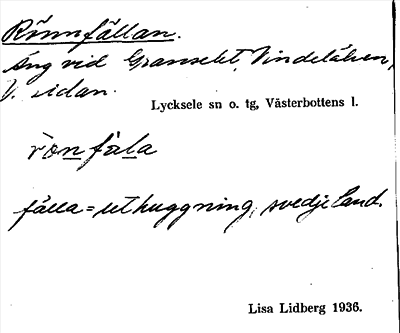 Rönnfällan.
Äng vid Granselet, Vindelälven,
V. sidan.
Lycksele sn o. tg, Västerbottens l.
rönfäla
fälla = uthuggning, svedjeland.
Lisa Lidberg 1936.